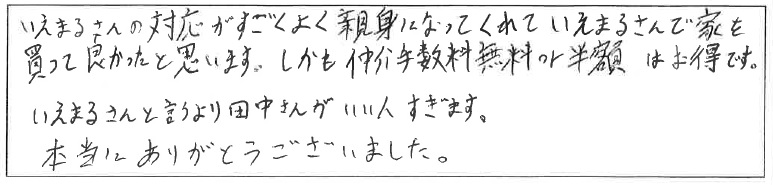 いえまるさんの対応がすごくよく親身になってくれていえまるさんで家を
買って良かったと思います。しかも仲介手数料無料or半額 はお得です。
いえまるさんと言うより田中さんがいい人すぎます。
本当にありがとうございました。